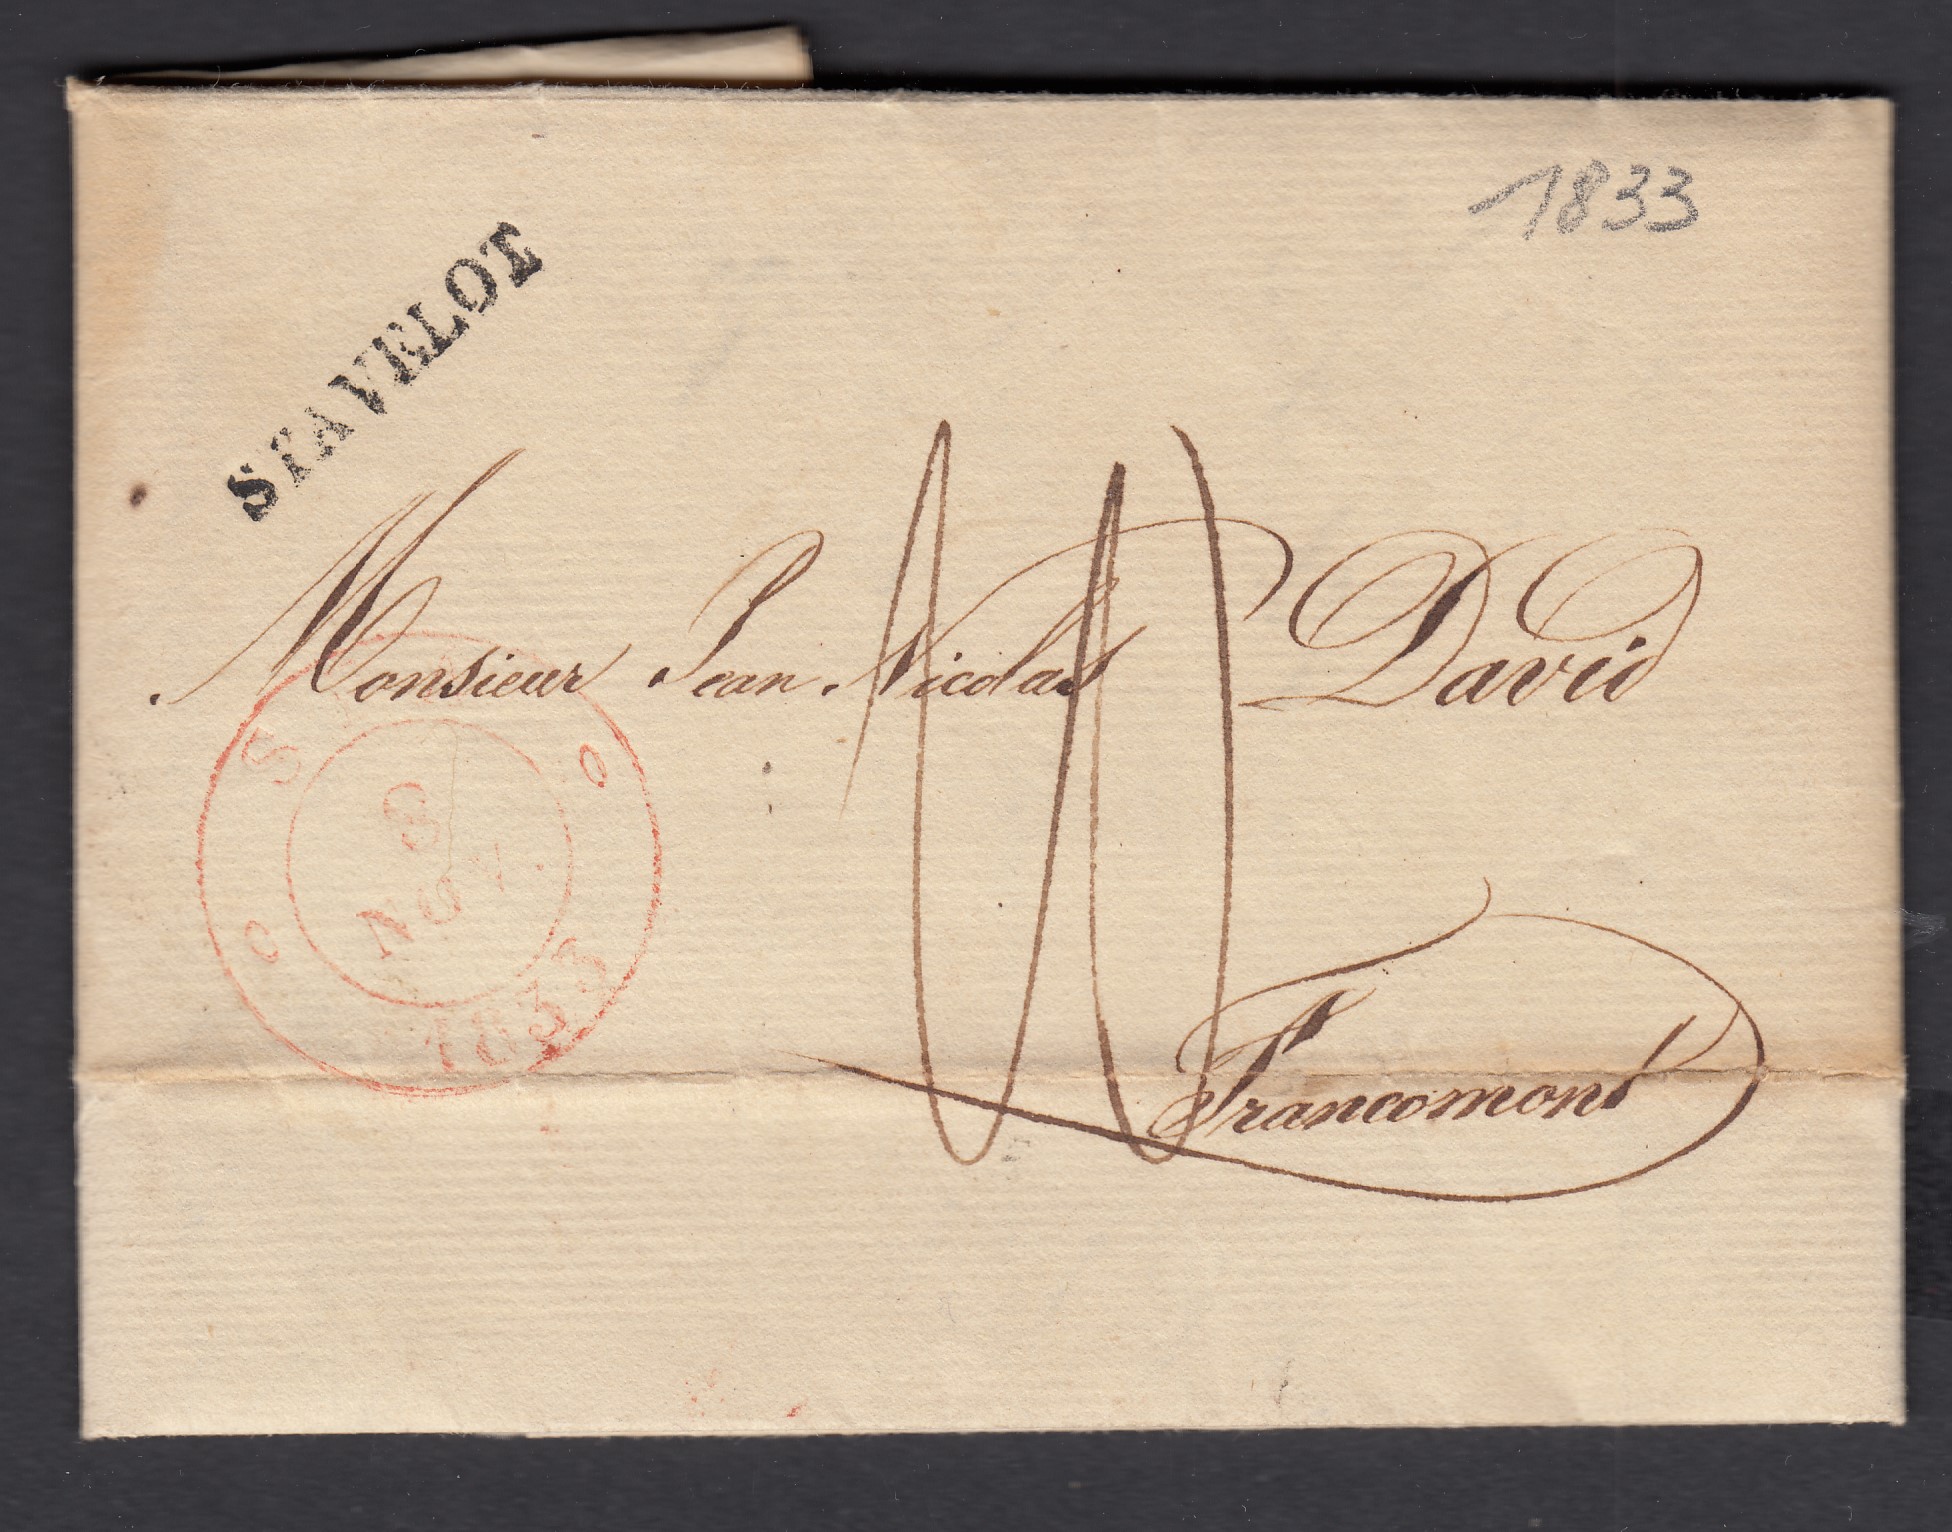 1833
STAVELOT
Monsieur Jean Nicolas David
S
8
NOV.
1833
Francomont